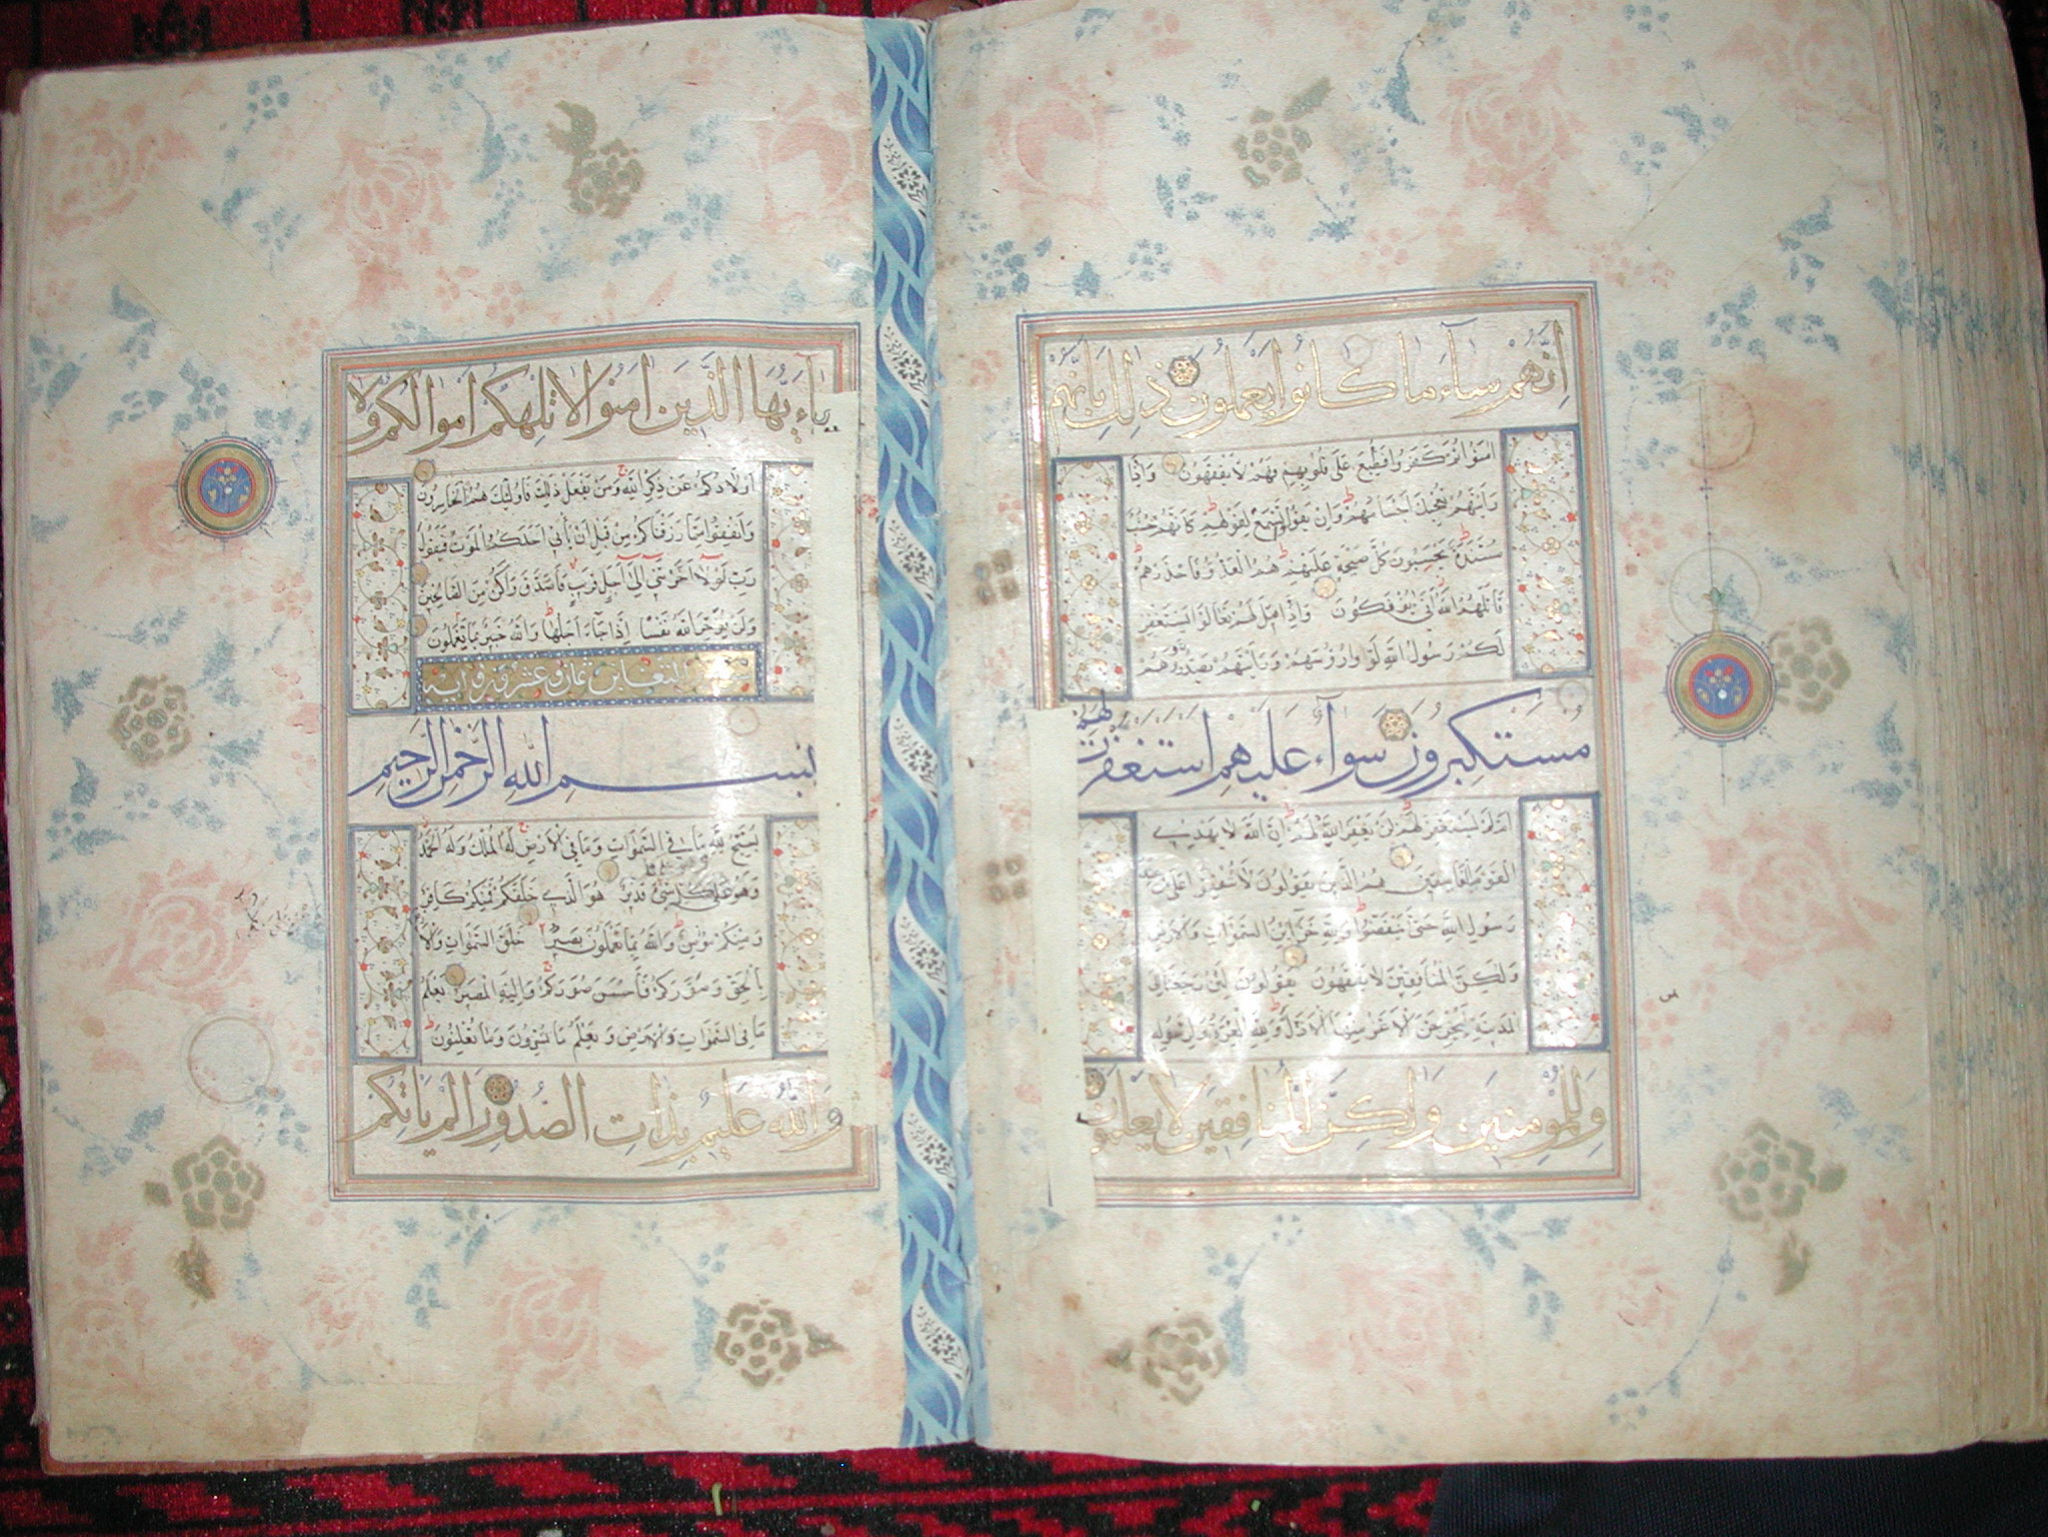 إنهم ساء ما كانوا يعملون ذلك بأنهم
امنوا ثم كفروا فطبع على قلوبهم فهم لا يفقهون وإذا
رأيتهم تعجبك أجسامهم وإن يقولوا تسمع لقولهم كأنهم خشب
مسندة يحسبون كل صيحة عليهم هم العدو فاحذرهم
قاتلهم الله أنى يؤفكون وإذا قيل لهم تعالوا يستغفر
لكم رسول الله لووا رؤسهم ورأيتهم يصدون وهم
مستكبرون سواء عليهم استغفرت لهم
أم لم تستغفر لهم لن يغفر الله لهم إن الله لا يهدي
القوم الفاسقين هم الذين يقولون لا تنفقوا على من عند
رسول الله حتى ينفضوا ولله خزاين السموات والأرض
ولكن المنافقين لا يفقهون يقولون لئن رجعنا إلى
المدينة ليخرجن الأعز منها الأذل ولله العزة ولرسوله
وللمومنين ولكن المنافقين لا يعلمون
ياءيها الذين امنوا لا تلهكم أموالكم ولا
أولادكم عن ذكر الله ومن يفعل ذلك فأولئك هم الخاسرون
وأنفقوا مما رزقناكم من قبل أن يأتي أحدكم الموت فيقول
رب لولا أخرتني إلى أجل قريب فأصدق وأكن من الصالحين
ولن يؤخر الله نفسا إذا جاء أجلها والله خبير بما تعملون
التغابن ثمان وعشر اية
بسم الله الرحمن الرحيم
يسبح لله ما في السموات وما في الأرض له الملك وله الحمد
وهو على كل شيء قدير هو الذي خلقكم فمنكم كافر
ومنكم مؤمن والله بما تعملون بصير خلق السموات والأرض
بالحق وصوركم فأحسن صوركم وإليه المصير يعلم
ما في السموات والأرض ويعلم ما تسرون وما تعلنون
والله عليم بذات الصدور ألم يأتكم